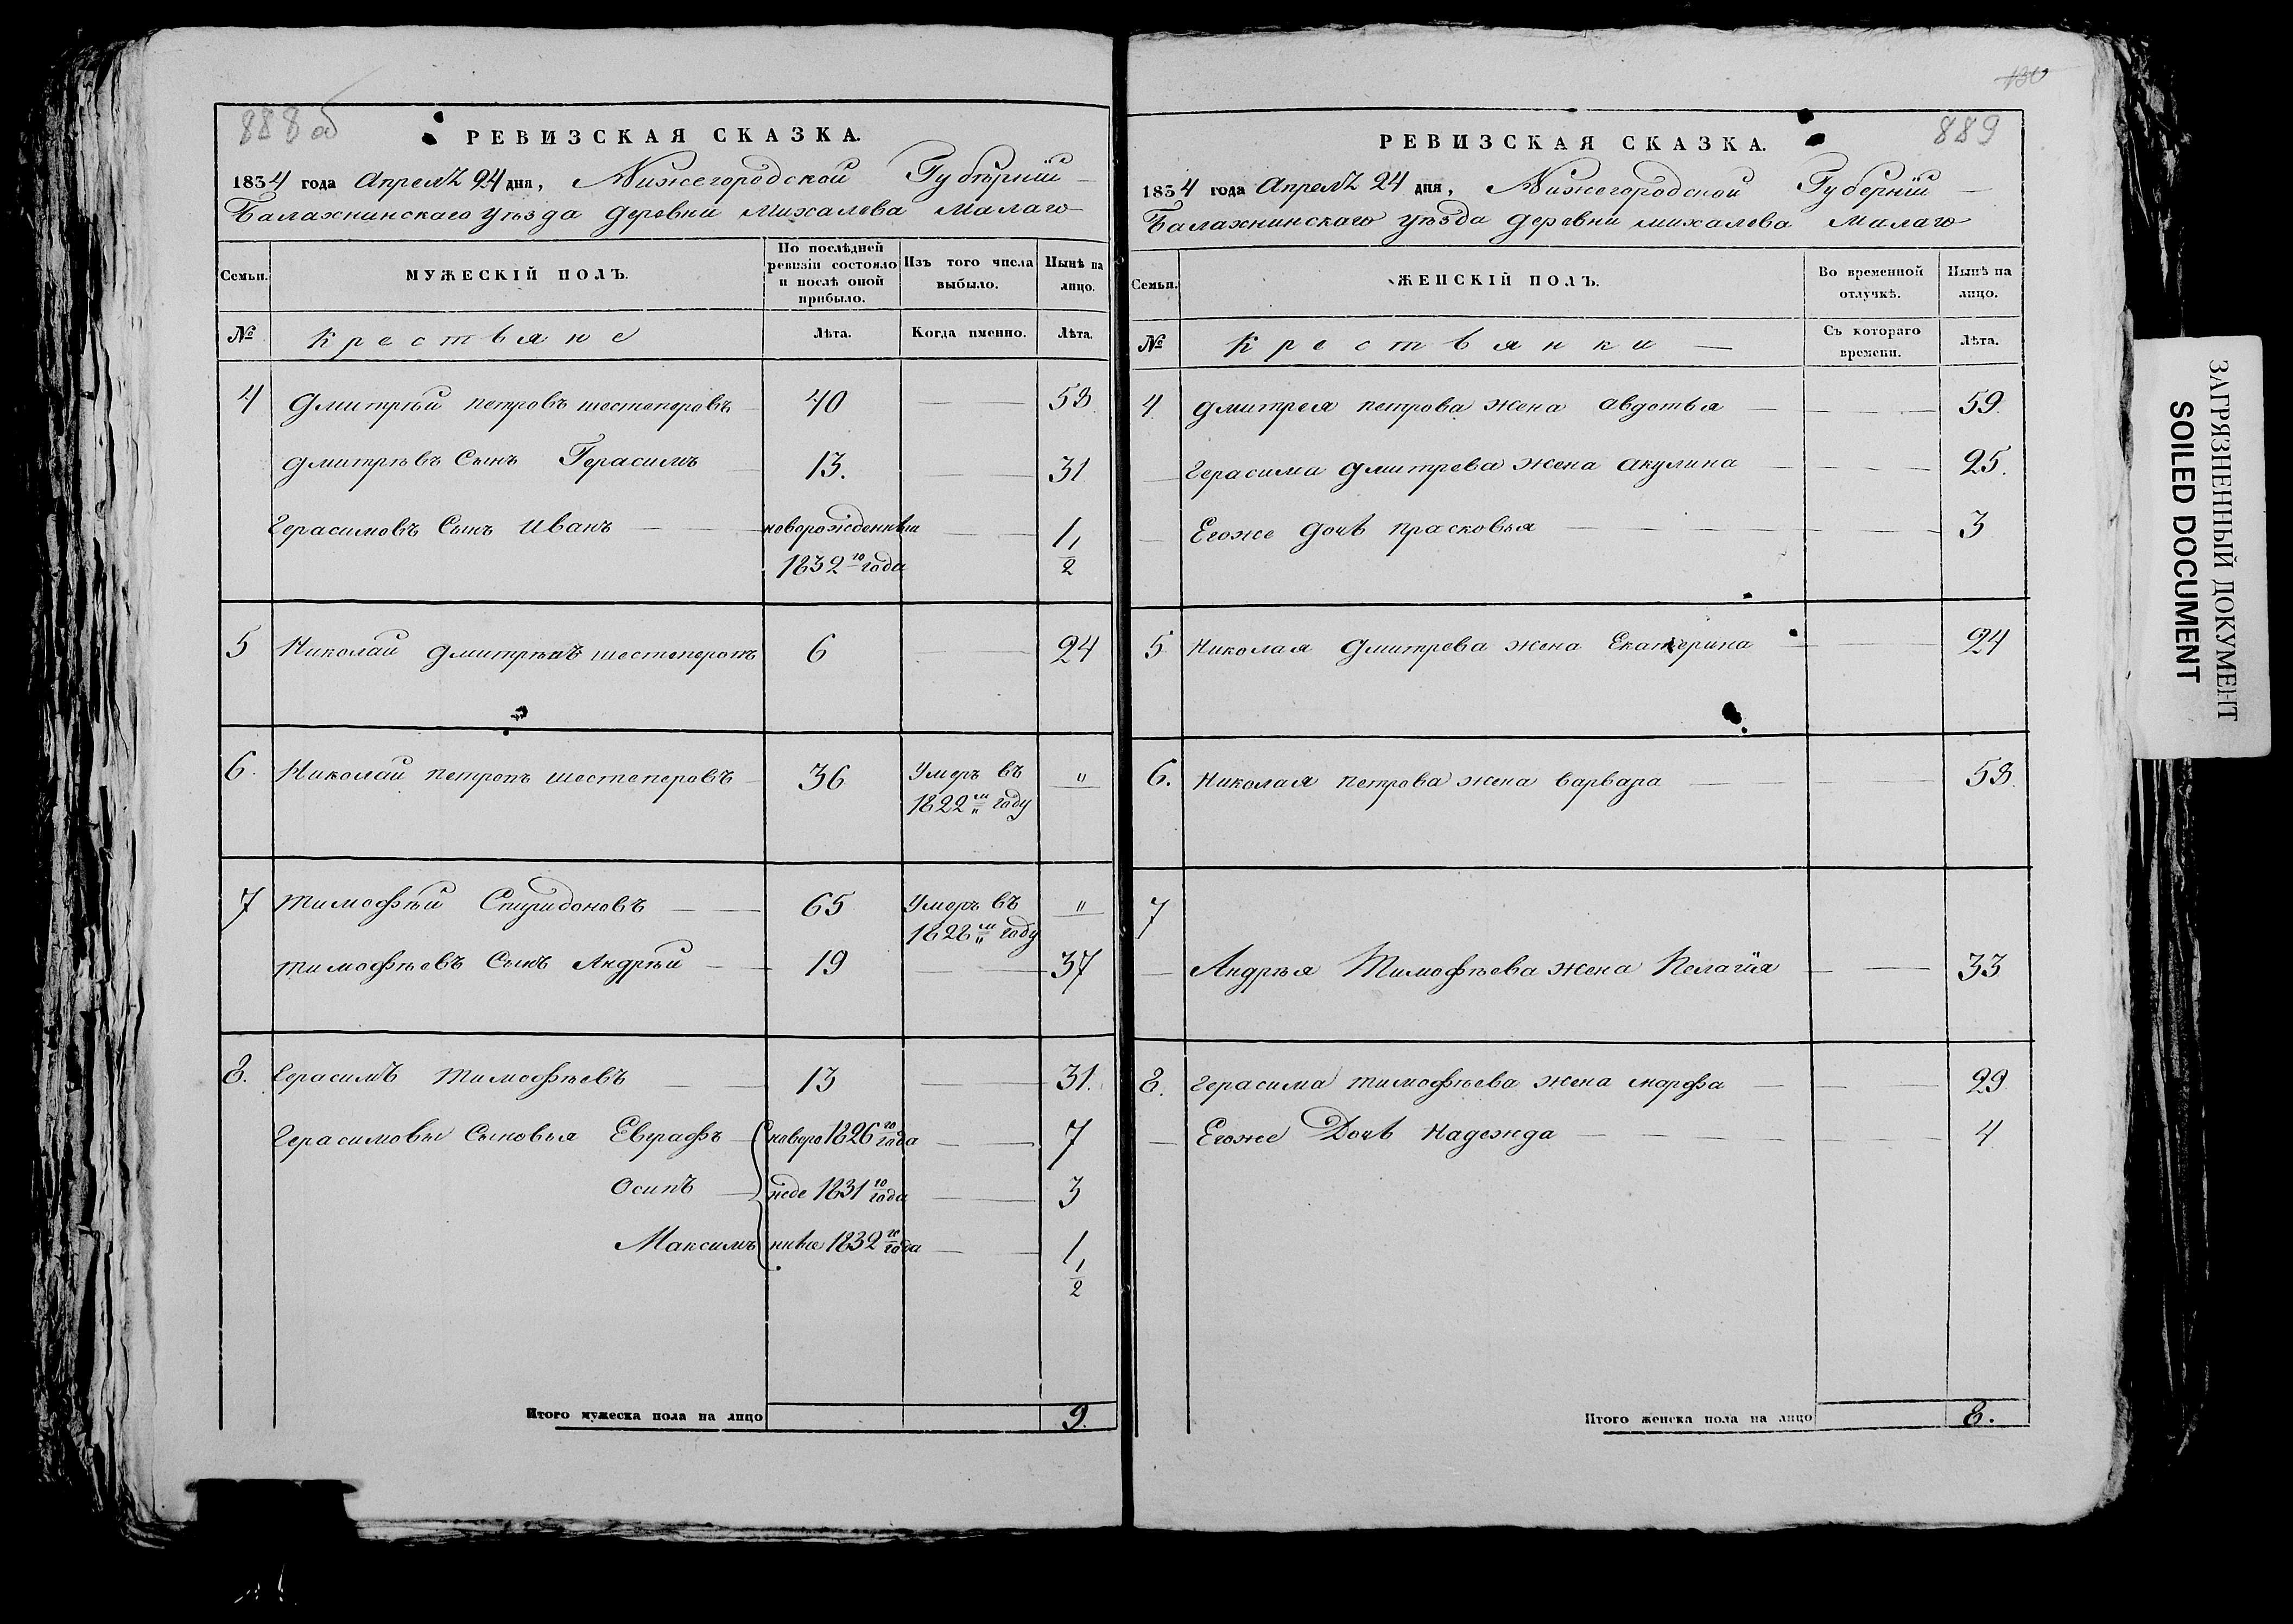 888 об
РЕВИЗСКАЯ СКАЗКА.
1834 года Апреля 24 дня, Нижегородской Губѣрніи
Балахнинскаго уѣзда деревни Михалева Малаго
Семьи.
МУЖЕСКІЙ ПОЛЪ.
По послѣдней ревизіи состояло и послѣ оной прибыло.
Изъ того числа выбыло.
Нынѣ на лицо.
№
Крестьяне
Лѣта.
Когда именно.
Лѣта.
4 Дмитрѣй петровъ шестеперовъ 40 — — 58
Дмитрѣвъ Сынъ Герасимъ 13. — 31
Герасимовъ Сынъ Иванъ — новорожденный 1832го года — 1 1/2
5 Николай Дмитрѣвъ шестеперовъ 6 — 24
6. Николай петровъ шестеперовъ 36 Умеръ въ 1822м году "
7 Тимофѣй Спиридоновъ — 65 Умеръ въ 1828м году "
Тимофѣевъ Сынъ Андрѣй — 19 — 37
8. Герасимъ Тимофѣевъ — 13 — 31.
Герасимовы Сыновья Евграфъ новоро 1826го года — 7
Осипъ жде 1831го года — 3
Максимъ нные 1832го года — 1 1/2
Итого мужеска пола на лицо 9.
130
889
РЕВИЗСКАЯ СКАЗКА.
1834 года Апреля 24 дня, Нижегородской Губерніи
Балахнинскаго уѣзда деревни михалева Малаго
Семьи.
ЖЕНСКІЙ ПОЛЪ.
Во временной отлучкѣ.
Нынѣ на лицо.
№
Крестьянки —
Съ котораго времени.
Лѣта.
4 Дмитрея петрова жена авдотья — — 59.
Герасима Дмитрева жена акулина — — 25.
Егоже дочь прасковья — — 3
5 Николая Дмитрева жена Екатерина — 24
6. Николая петрова жена варвара — — 58.
7
Андрѣя Тимофѣева жена Пелагія — — 33
8. Герасима тимофѣева жена марфа — — 29.
Егоже Дочь Надежда — — 4
Итого женска пола на лицо 8.
ЗАГРЯЗНЕННЫЙ ДОКУМЕНТ
SOILED DOCUMENT